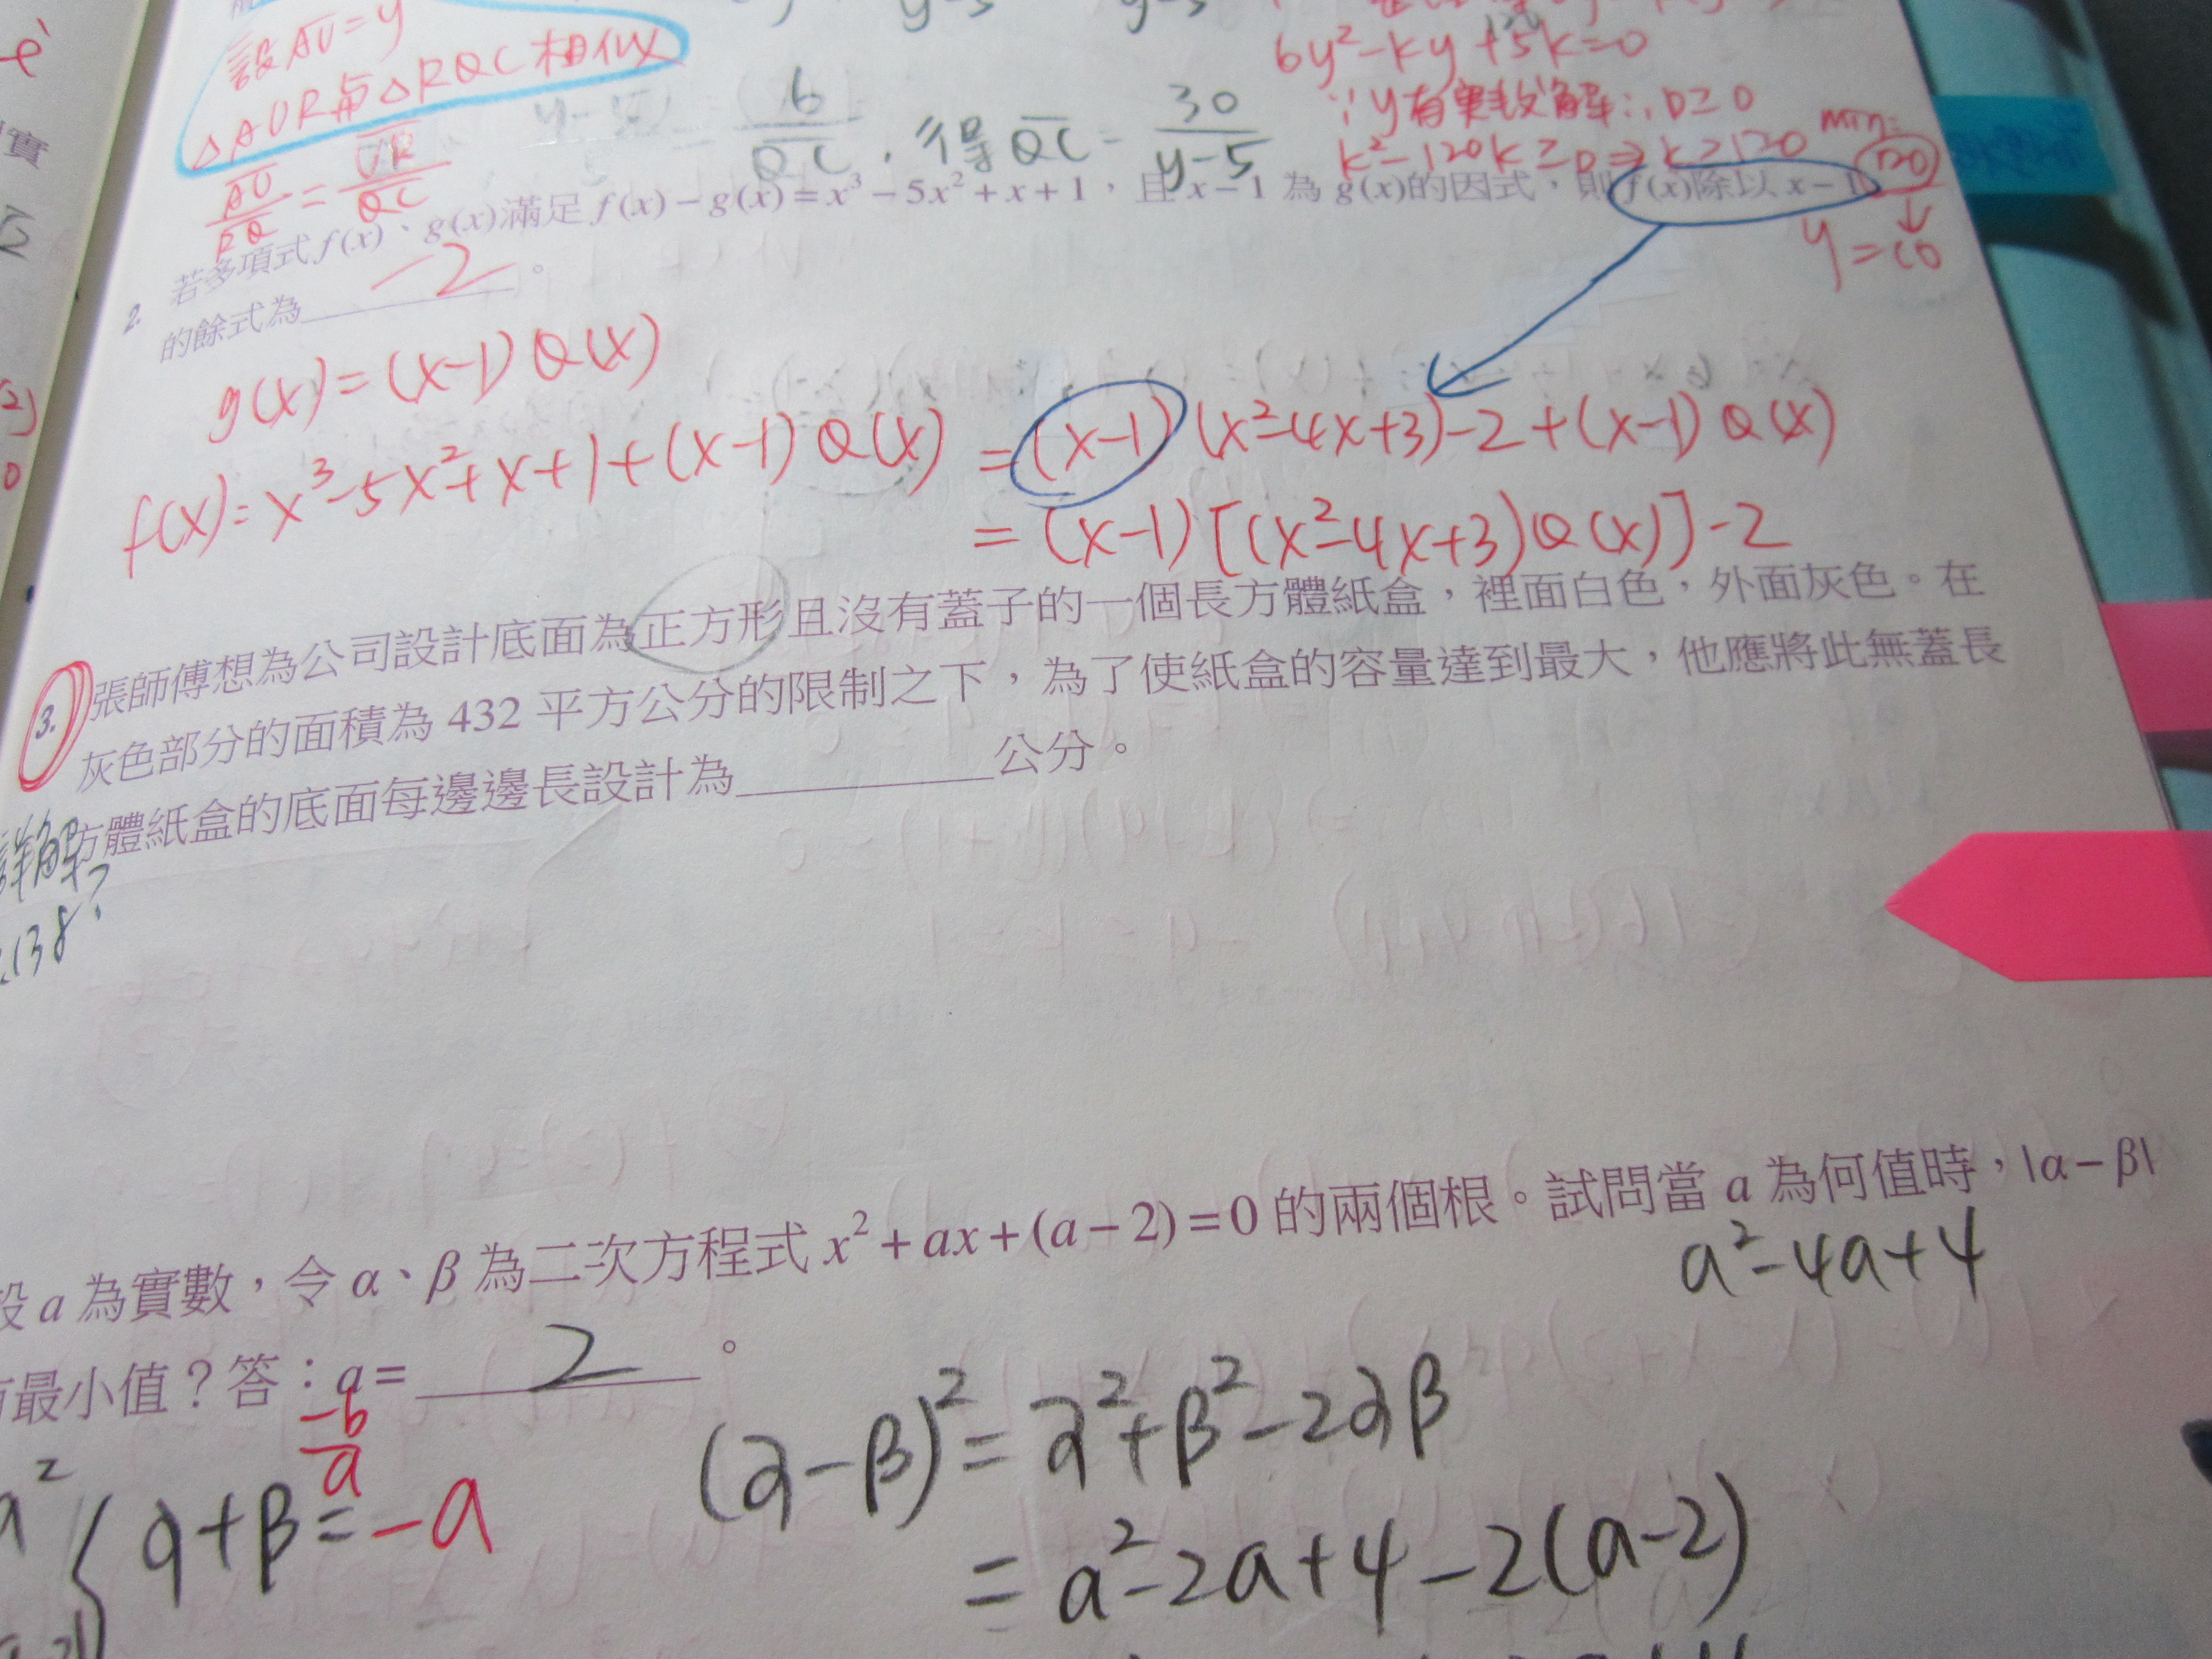 設AU=y
△AUR與△RQC相似
AU/RQ = UR/QC
6/QC,得QC=30/y-5
6y²-ky+5k=0
∵y有實數解∴D≥0
k²-120k≥0⇒k≥120
min:
120
↓
y=10
2. 若多項式f(x)、g(x)滿足f(x)-g(x)=x³-5x²+x+1,且x-1為g(x)的因式,則f(x)除以x-1
的餘式為 -2 。
g(x)=(x-1)Q(x)
f(x)=x³-5x²+x+1+(x-1)Q(x) =(x-1)(x²-4x+3)-2+(x-1)Q(x)
=(x-1)[(x²-4x+3)Q(x)]-2
3. 張師傅想為公司設計底面為正方形且沒有蓋子的一個長方體紙盒,裡面白色,外面灰色。在
灰色部分的面積為432平方公分的限制之下,為了使紙盒的容量達到最大,他應將此無蓋長
方體紙盒的底面每邊邊長設計為________公分。
詳解
138?
設a為實數,令α、β為二次方程式x²+ax+(a-2)=0的兩個根。試問當a為何值時,|α-β|
a²-4a+4
有最小值?答:a= 2 。
-b/a
α+β=-a
(α-β)²=α²+β²-2αβ
=a²-2a+4-2(a-2)